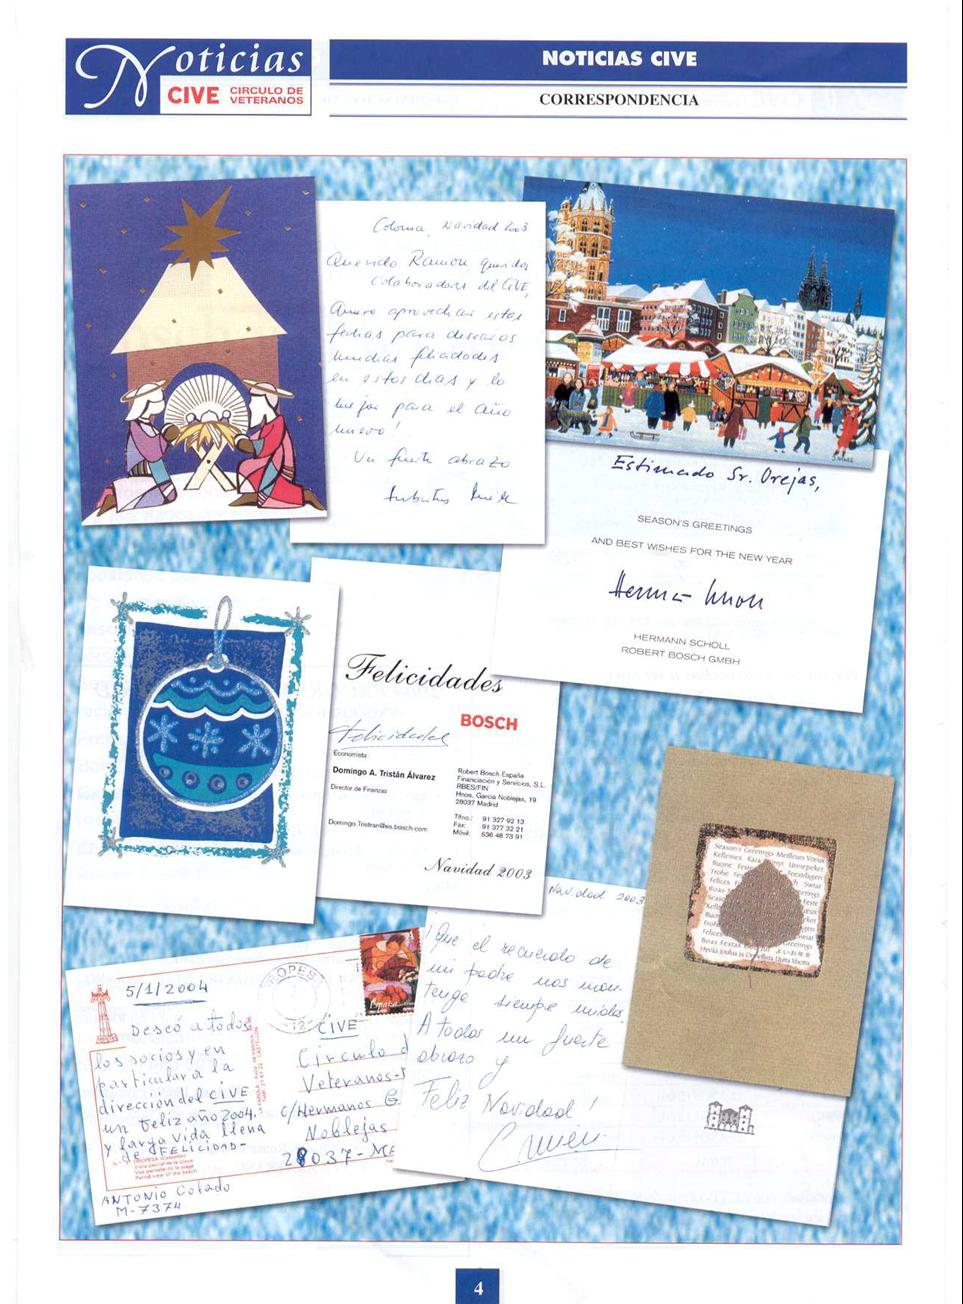 Noticias
CIVE CIRCULO DE
VETERANOS
NOTICIAS CIVE
CORRESPONDENCIA
Colonia, Navidad 2003
Querido Ramón queridos
colaboradores del CIVE,
Quiero aprovechar estas
fechas para desearos
muchas felicidades
en estos días y lo
mejor para el año
nuevo!
Un fuerte abrazo
Estimado Sr. Orejas,
SEASON'S GREETINGS
AND BEST WISHES FOR THE NEW YEAR
HERMANN SCHOLL
ROBERT BOSCH GMBH
Felicidades
BOSCH
Felicidades
Economista
Domingo A. Tristán Álvarez
Director de Finanzas
Domingo.Tristran@es.bosch.com
Robert Bosch España
Financiación y Servicios, S.L.
RBES/FIN
Hnos. García Noblejas, 19
28037 Madrid
Tlfno.: 91 327 92 13
Fax: 91 377 32 21
Móvil: 636 48 73 91
Navidad 2003
Season's Greetings Meilleurs Vœux
Navidad 2003
¡Que el recuerdo de
mi padre nos man-
tenga siempre unidos.
A todos un fuerte
abrazo y
Feliz Navidad!
5/1/2004
Deseó a todos
los socios y en
particular a la
dirección del CIVE
un feliz año 2004.
y larga vida llena
de FELICIDAD-
ANTONIO Colado
M-7374
OROPESA (Castellón)
Vista parcial de la playa
OROPES
12
España
CIVE
Circulo d
Veteranos-
c/Hermanos G.
Noblejas
28037-MA
4